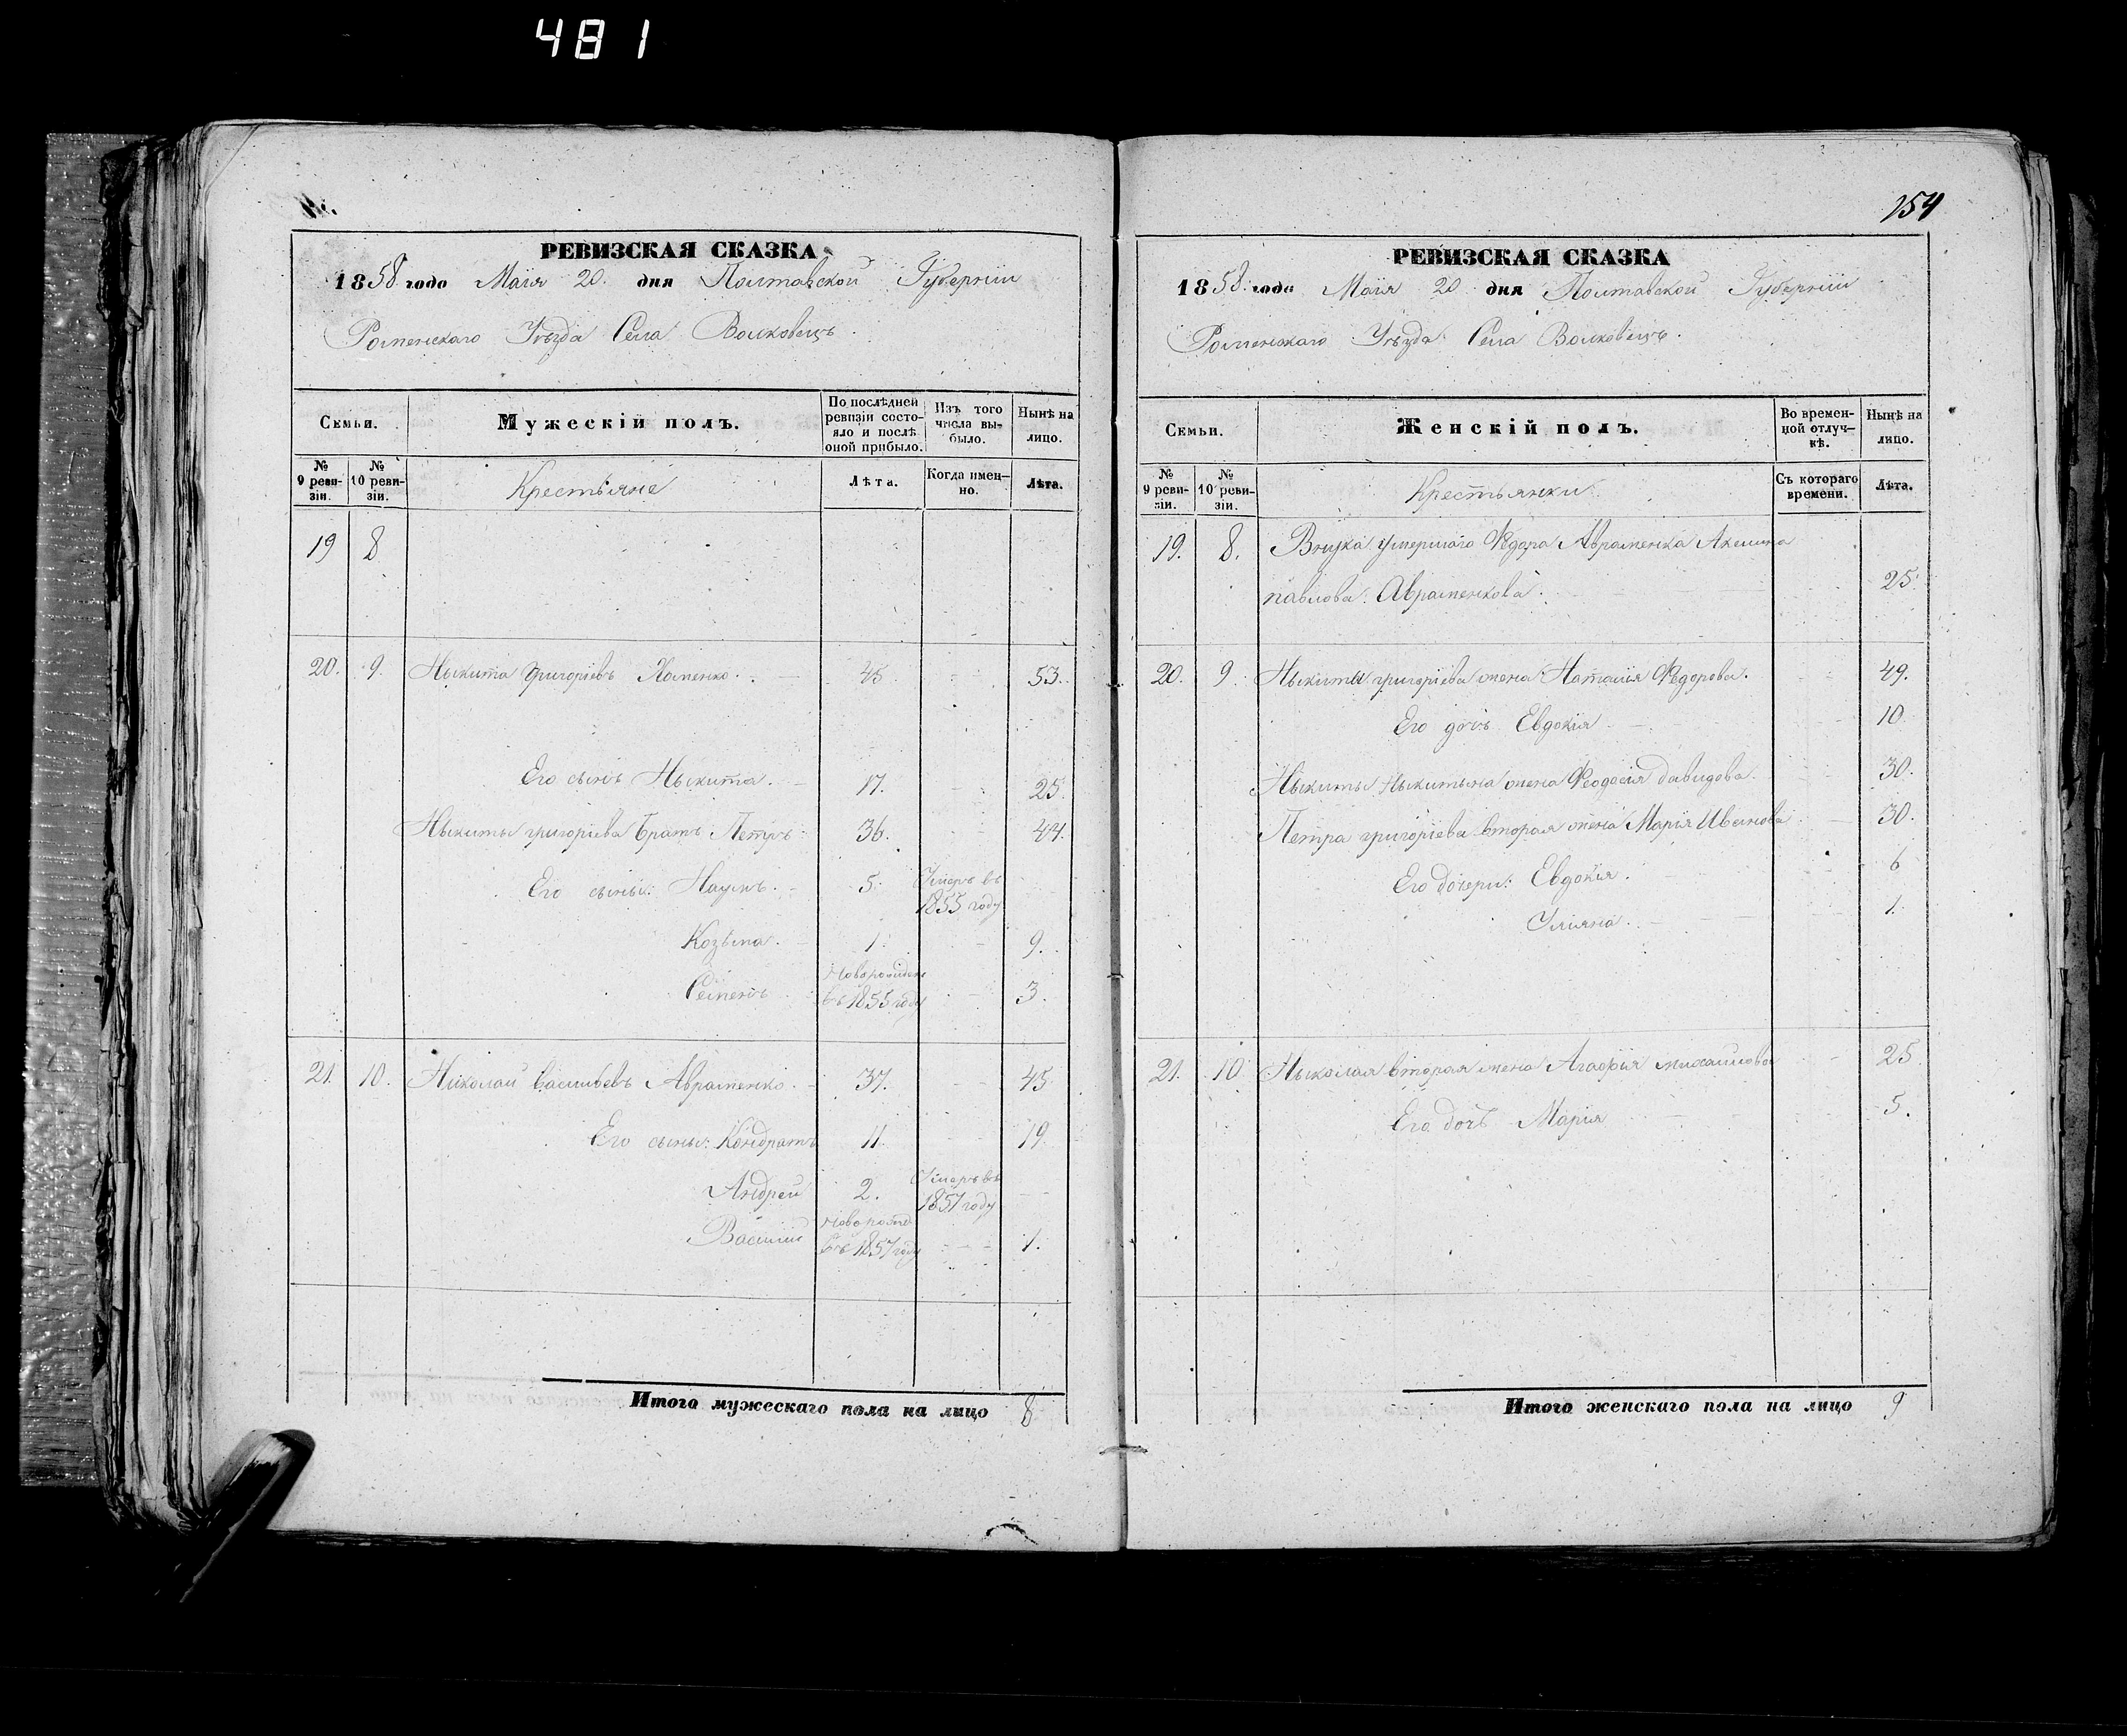 481
РЕВИЗСКАЯ СКАЗКА
1858 года Маія 20. дня Полтавской Губерніи
Роменскаго Уѣзда Села Волковецъ.
Семьи.
Мужескій полъ.
По послѣдней ревизіи состояло и послѣ оной прибыло.
Изъ того числа выбыло.
Нынѣ на лицо.
№ 9 ревизіи.
№ 10 ревизіи.
Крестьяне
Лѣта.
Когда именно.
Лѣта.
19 8
20. 9. Ныкита Григоріевъ Хоменко. 45 53.
Его сынъ Ныкита. 17. 25.
Ныкиты григоріева братъ Петръ 36. 44.
Его сыны: Наумъ. 5. Умеръ въ 1855 году
Козьма. 1. 9.
Семенъ новорожден въ 1855 году 3.
21. 10. Николай васильевъ Авраменко. 37. 45
Его сыны: Кондратъ 11. 19.
Андрей 2. Умеръ въ 1857 году
Василій новорожд въ 1857 году 1.
Итого мужескаго пола на лицо 8
154
РЕВИЗСКАЯ СКАЗКА
1858. года Маія 20 дня Полтавской Губерніи
Роменскаго Уѣзда Села Волковецъ.
Семьи.
Женскій полъ.
Во временной отлучкѣ.
Нынѣ на лицо.
№ 9 ревизіи.
№ 10 ревизіи.
Крестьянки
Съ котораго времени.
Лѣта.
19. 8. Внука умершаго Федора Авраменка Акелина
павлова Авраменкова. 25
20. 9. Ныкиты григоріева жена Наталія Федорова. 49.
Его дочь Евдокія 10.
Ныкиты Ныкитина жена Феодосія давидова. 30.
Петра григоріева вторая жена Марія Иванова 30.
Его дочери: Евдокія. 6
Уліяна. 1.
21. 10. Ныколая вторая жена Агафія михайлова 25
Его дочь Марія 5.
Итого женскаго пола на лицо 9